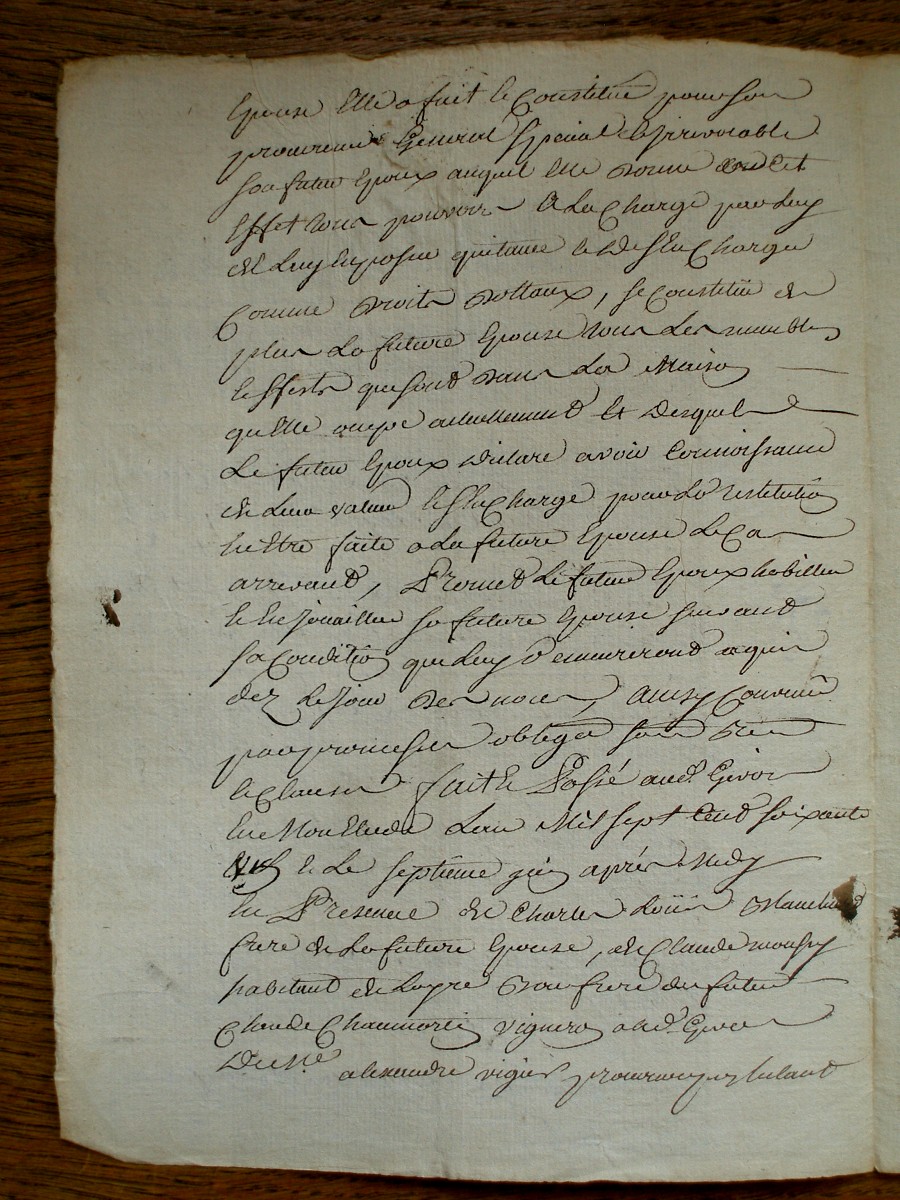 Epouse Elle a fait & Constitué pour Son
procureur General Special & irrevocable
Son futur Epoux auquel Elle donne a Cet
Effet tout pouvoir A La Charge par Luy
d'En passer quitance & de S'En Charger
Comme droits dottaux, Se Constitüe de
plus La future Epouse tous Les meubles
& Effets qui Sont dans La Maison
qu'Elle occupe actuellement Et desquels
Le futur Epoux declare avoir Connoissance
de Leur valeur & S'En Charge pour La restitution
En Etre faite a La future Epouse Le Cas
arrivant, Promet Le futur Epoux habiller
& Enjouailler Sa future Epouse Suivant
Sa Condition que Luy demeureront acquis
dez Le jour des noces, Ainsy Convenu
par promesses obligaon Soum Ren
& Clauses fait & Passé aud. Givors
En Mon Etude L'an Mil Sept Cent Soixante
& Le Septieme après Midy
En Presence de Charles Loüis
frere de La future Epouse, de Claude
habitant de beaufrere du futur
Claude vigneron aud. Givors
alexandre vigier